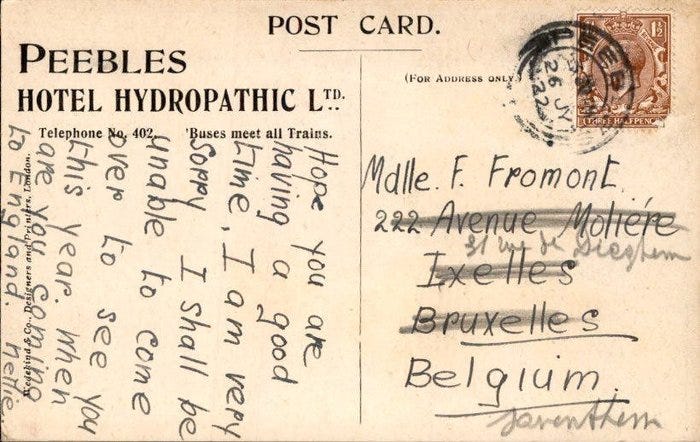 POST CARD.
PEEBLES
HOTEL HYDROPATHIC LTD.
Telephone No. 402. 'Buses meet all Trains.
(FOR ADDRESS ONLY.)
PEEBLES
26 JY
22
1½
THREE HALFPENCE
Hope you are
having a good
time, I am very
sorry I shall be
unable to come
over to see you
this year. When
are you coming
to England. Nellie
Wedekind & Co., Designers and Printers, London.
Mdlle. F. Fromont.
222 Avenue Molière
31 rue de Dieghem
Ixelles
Bruxelles
Belgium.
Saventhem